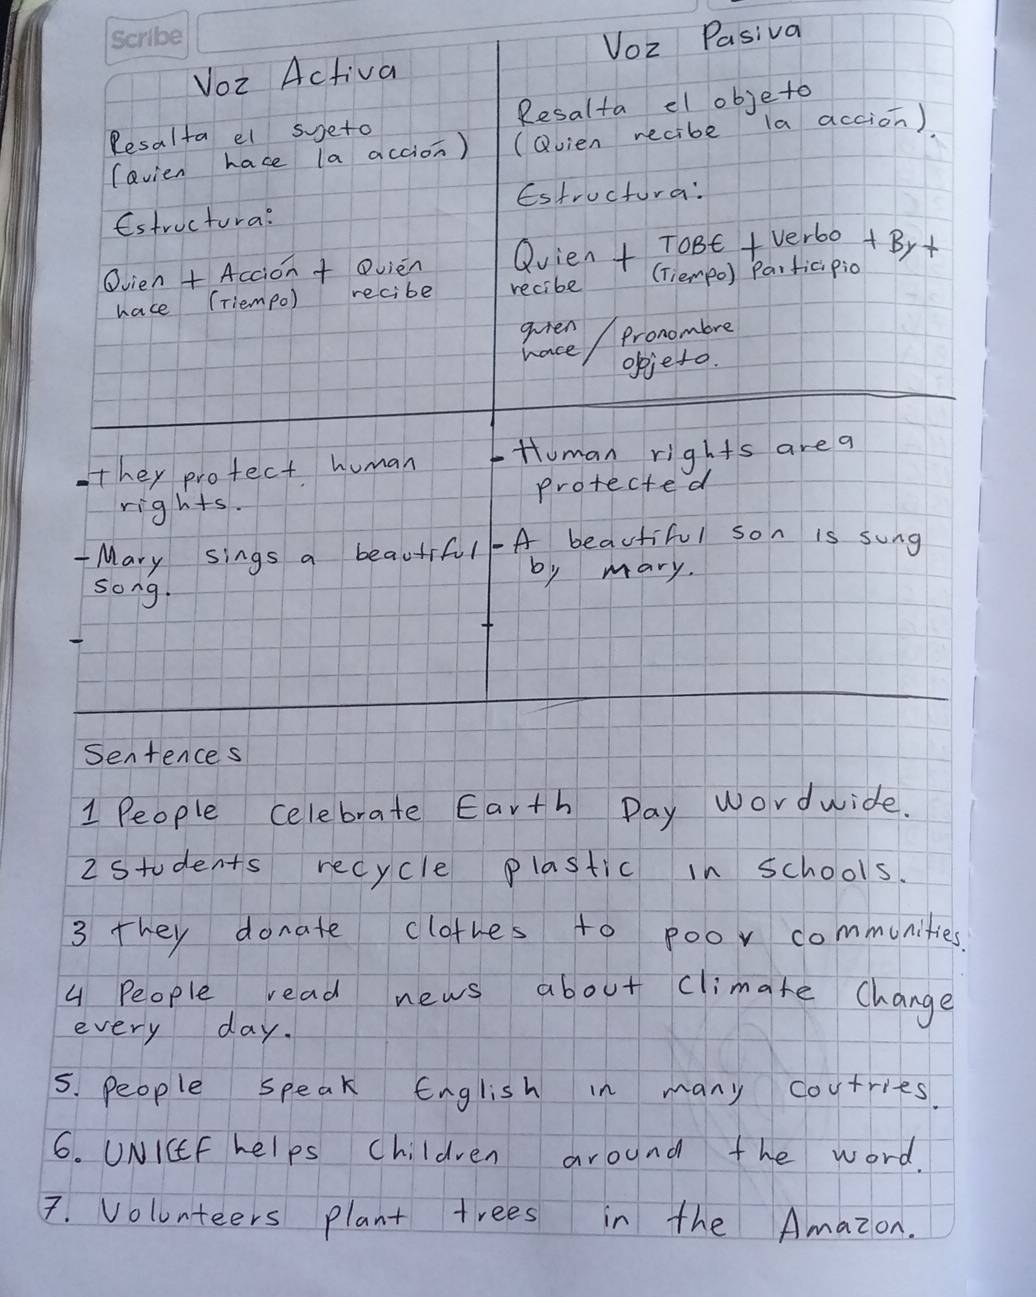 Scribe
Voz Activa
Resalta el sujeto
(Quien hace la acción)
Estructura:
Quien + Acción + Quién
hace (Tiempo) recibe
Voz Pasiva
Resalta el objeto
(Quien recibe la acción).
Estructura:
Quien + TOBE + Verbo + By +
recibe (Tiempo) Participio
quien / Pronombre
hace objeto.
- They protect human
rights.
- Mary sings a beautiful
song.
-
- Human rights area
protected
- A beautiful son is sung
by mary.
Sentences
1 People celebrate Earth Day wordwide.
2 Students recycle plastic in schools.
3 they donate clothes to poor communities.
4 People read news about climate Change
every day.
5. People speak English in many coutries.
6. UNICEF helps children around the word.
7. Volunteers plant trees in the Amazon.